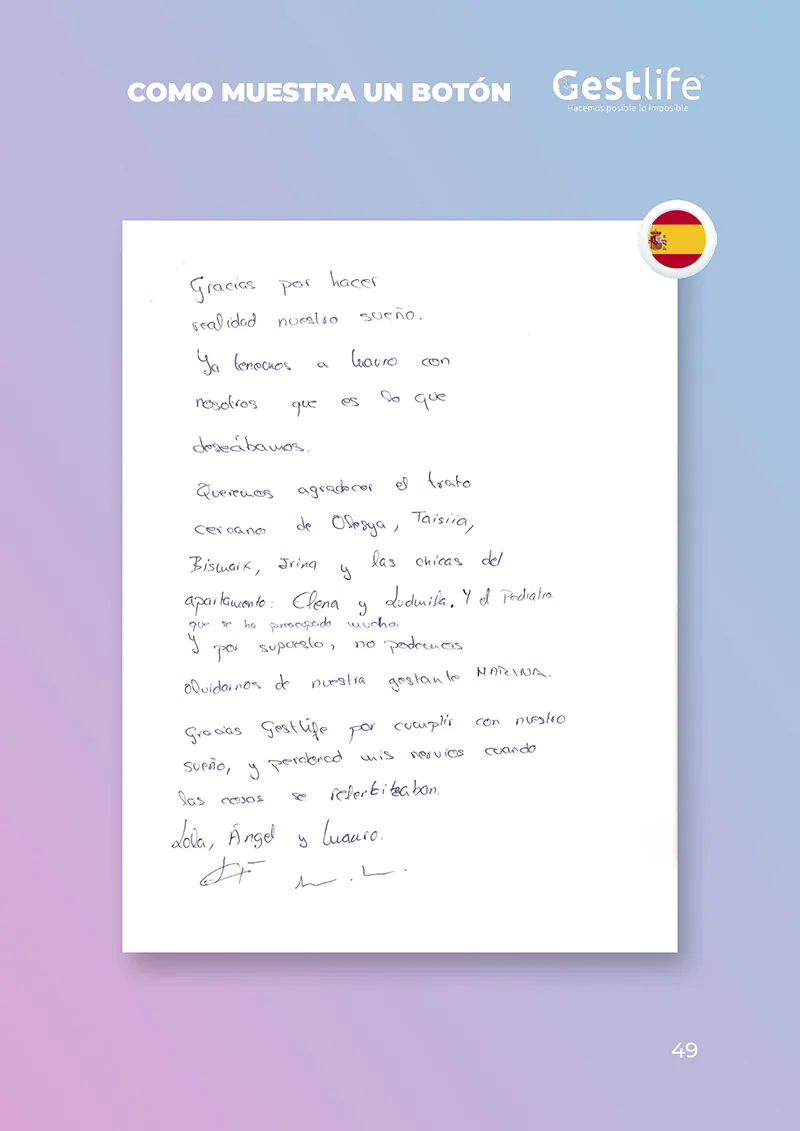 COMO MUESTRA UN BOTÓN
Gestlife
Hacemos posible lo imposible
Gracias por hacer
realidad nuestro sueño.
Ya tenemos a Lauro con
nosotros que es lo que
deseábamos.
Queremos agradecer el trato
cercano de Olesya, Taisiia,
Bismark, Irina y las chicas del
apartamento: Elena y Ludmila. Y el Pediatra
que se ha preocupado mucho.
Y por supuesto, no podremos
olvidarnos de nuestra gestante MARINA.
Gracias Gestlife por cumplir con nuestro
sueño, y perdonad mis nervios cuando
las cosas se
Lola, Ángel y
49